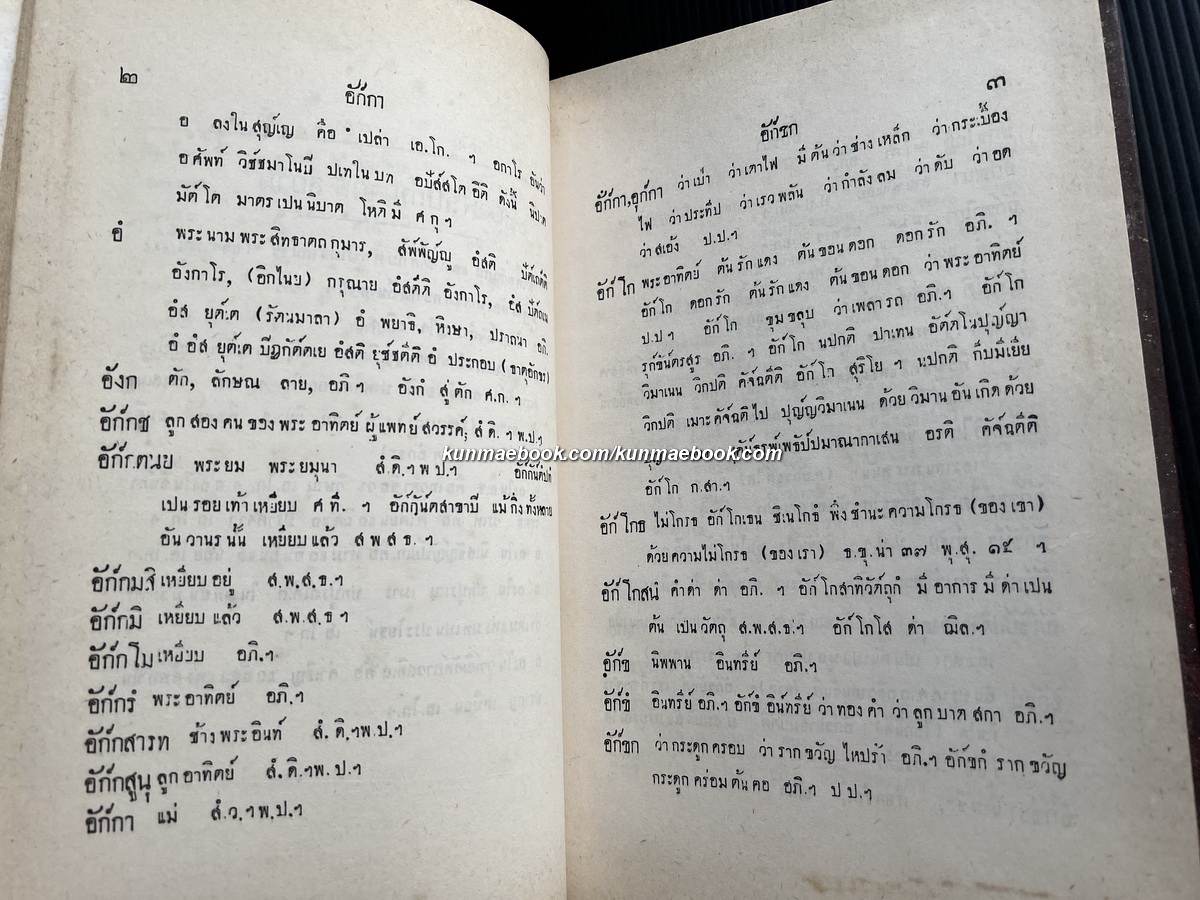 ๒
อัก๎กา
อ ลงใน สุญ๎เญ คือ ๐ เปล่า เอ.โก. ฯ อกาโร อันว่า
อ ศัพท์ วิชชมาโนปี ปเทใน บท อปัส๎สโต อิติ ดังนี้ นิปาต
มัต๎โต มาตร เปน นิบาต โหติ มี ศ กุ ฯ
อํ พระ นาม พระ สิทธาตถ กุมาร, สัพ๎พัญ๎ญู อํสติ
อังกาโร, (อิกไนย) กรุณาย อํสัต๎ติ อังกาโร,
อํส ยุต๎เต (รัตนมาลา) อํ พยาธิ, หิงษา, ปราถนา อภิ.
อํ อํส ยุต๎เต ปีฎกัต๎ตเย อํสติ ยุช๎ชตีติ อํ ประกอบ (ธาตุอักขร)
อังก ตัก, ลักษณ ลาย, อภิ ฯ อังกํ สู่ ตัก ศ.ก. ฯ
อัก๎กช ลูก สอง คน ของ พระ อาทิตย์ ผู้ แพทย์ สวรรค์, สํ ดิ. ฯ พ.ป. ฯ
อัก๎กตนย พระยม พระยมุนา สํ.ดิ. ฯ พ ป. ฯ
เปน รอย เท้า เหยียบ ศ ที่. ฯ อัก๎กัน๎ตสาขาปี แม้ กิ่ง ทั้งหลาย
อัน วานร นั้น เหยียบ แล้ว ส พ ส ธ. ฯ
เหยียบ อยู่ ส.พ.ส.ธ. ฯ
อัก๎กมิ เหยียบ แล้ว ส.พ.ส.ธ ฯ
อัก๎กโม เหยียบ อภิ. ฯ
อัก๎กรํ พระ อาทิตย์ อภิ. ฯ
อัก๎กสารท ช้าง พระ อินท์ สํ. ดิ. ฯ พ.ป. ฯ
อัก๎กสูนุ ลูก อาทิตย์ สํ. ดิ. ฯ พ.ป. ฯ
อัก๎กา แม่ สํ.ว. ฯ พ.ป. ฯ
๓
อัก๎ขก
อัก๎กา,อุก๎กา ว่า เบ้า ว่า เตาไฟ มี ต้น ว่า ช่าง เหล็ก ว่า กระเบื้อง
ไฟ ว่า ประทีป ว่า เรว พลัน ว่า กำลัง ลม ว่า ดับ ว่า อด
ว่า สเอ้ง ป.ป. ฯ
อัก๎โก พระ อาทิตย์ ต้น รัก แดง ต้น ขอน ดอก ดอก รัก อภิ. ฯ
อัก๎โก ดอก รัก ต้น รัก แดง ต้น ขอน ดอก ว่า พระ อาทิตย์
ป.ป ฯ อัก๎โก ขุม ขลุบ ว่า เพลา รถ อภิ. ฯ อัก๎โก
อภิ. ฯ อัก๎โก นปกติ ปาเทน อัต๎ตโนปุญ๎ญา
วิมาเนน วิกปติ คัจ๎ฉตีติ อัก๎โก สุริโย ฯ นปกติ
วิกปติ เมาะ คัจ๎ฉติ ไป ปุญ๎ญวิมาเนน ด้วย วิมาน อัน เกิด ด้วย
อรติ คัจ๎ฉตีติ
อัก๎โก ก.สา. ฯ
อัก๎โกธ ไม่ โกรธ อัก๎โกเธน ชิเนโกธํ พึง ชำนะ ความ โกรธ (ของ เขา)
ด้วย ความ ไม่ โกรธ (ของ เรา) ธ.ขุ. น่า ๓๗ พุ.สุ. ๑๕ ฯ
อัก๎โกสนํ คำ ด่า ด่า อภิ. ฯ อัก๎โกสาทิวัต๎ถุกํ มี อาการ มี ด่า เปน
ต้น เปน วัตถุ ส.พ.ส.ธ. ฯ อัก๎โกโส ด่า ฌิล. ฯ
อัก๎ข นิพพาน อินทรีย์ อภิ. ฯ
อัก๎ขํ อินทรีย์ อภิ. ฯ อัก๎ขํ อินทรีย์ ว่า ทอง คำ ว่า ลูก บาต สกา อภิ. ฯ
อัก๎ขก ว่า กระดูก ครอบ ว่า ราก ขวัญ ไหปร้า อภิ. ฯ อัก๎ขกํ ราก ขวัญ
กระดูก คร่อม ต้น คอ อภิ. ฯ ป ป. ฯ
kunmaebook.com/kunmaebook.com